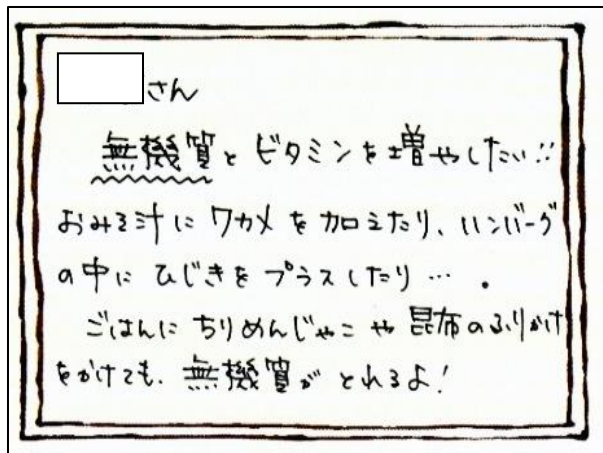 さん
無機質とビタミンを増やしたい!!
おみそ汁にワカメを加えたり、ハンバーグ
の中にひじきをプラスしたり… .
ごはんにちりめんじゃこや昆布のふりかけ
をかけても、無機質がとれるよ!